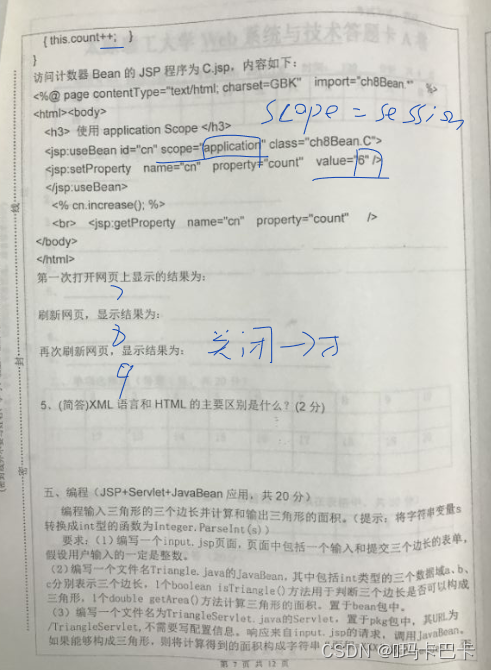 { this.count++; }
}
访问计数器 Bean 的 JSP 程序为 C.jsp,内容如下:
<%@ page contentType="text/html; charset=GBK" import="ch8Bean.*" %>
<html><body>
scope=session
<h3> 使用 application Scope </h3>
<jsp:useBean id="cn" scope="application" class="ch8Bean.C">
<jsp:setProperty name="cn" property="count" value="6" />
</jsp:useBean>
<% cn.increase(); %>
<br> <jsp:getProperty name="cn" property="count" />
</body>
</html>
第一次打开网页上显示的结果为:
7
刷新网页,显示结果为:
8
再次刷新网页,显示结果为: 关闭→
9
5、(简答)XML 语言和 HTML 的主要区别是什么?(2 分)
五、编程(JSP+Servlet+JavaBean 应用,共 20 分)
编程输入三角形的三个边长并计算和输出三角形的面积。(提示:将字符串变量s
转换成int型的函数为Integer.ParseInt(s))
要求:(1)编写一个input.jsp页面,页面中包括一个输入和提交三个边长的表单,
假设用户输入的一定是整数。
(2)编写一个文件名Triangle.java的JavaBean,其中包括int类型的三个数据域a、b、
c分别表示三个边长,1个boolean isTriangle()方法用于判断三个边长是否可以构成
三角形,1个double getArea()方法计算三角形的面积。置于bean包中。
(3)编写一个文件名为TriangleServlet.java的Servlet,置于pkg包中,其URL为
/TriangleServlet,不需要写配置信息。响应来自input.jsp的请求,调用JavaBean,
如果能够构成三角形,则将计算得到的面积构成字符串
第 7 页 共 12 页
CSDN @叮玛卡巴卡